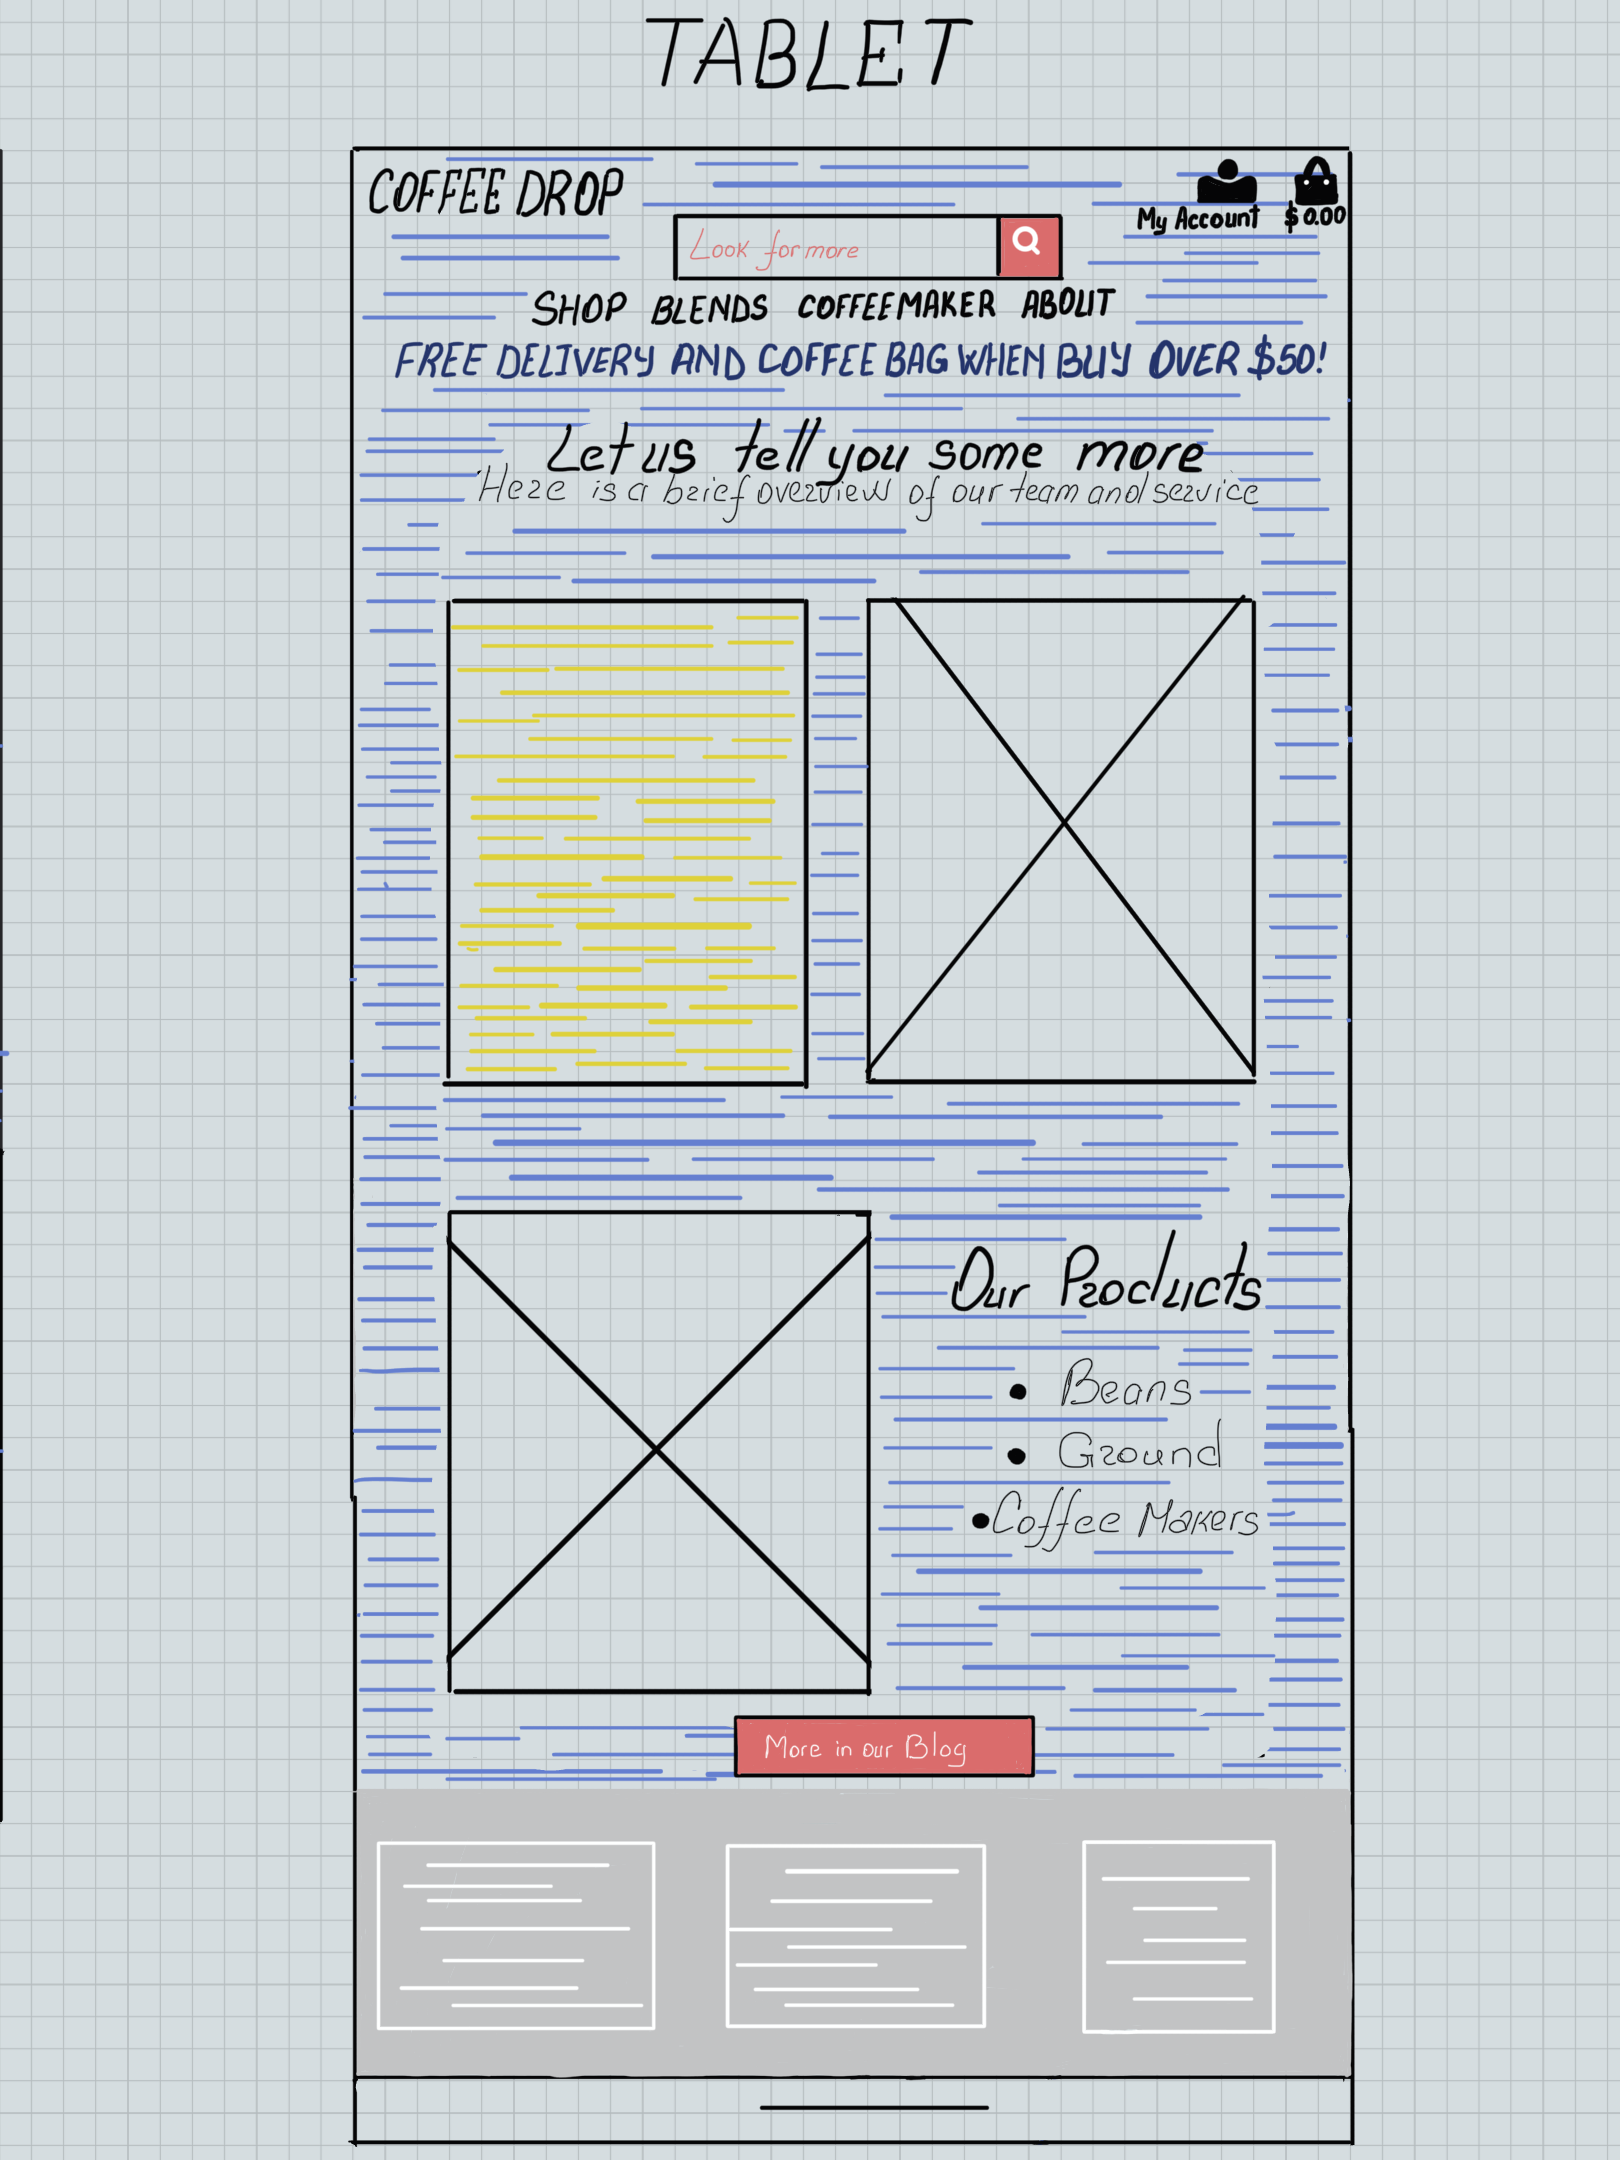 TABLET
COFFEE DROP
My Account $0.00
Look for more
SHOP BLENDS COFFEEMAKER ABOUT
FREE DELIVERY AND COFFEE BAG WHEN BUY OVER $50!
Let us tell you some more
Here is a brief overview of our team and service
Our Products
• Beans
• Ground
• Coffee Makers
More in our Blog